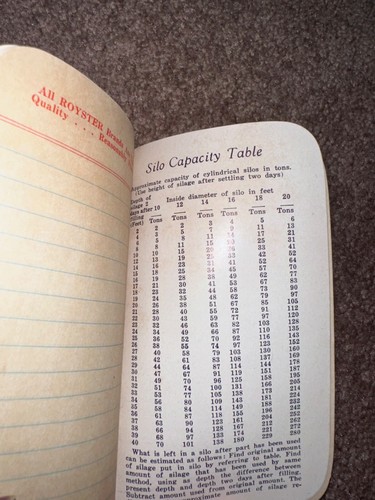 All ROYSTER Brands
Quality . . .
Silo Capacity Table
Approximate capacity of cylindrical silos in tons.
(Use height of silage after settling two days)
Depth of Inside diameter of silo in feet
silage 2
days after 10 12 14 16 18 20
filling
(Feet) Tons Tons Tons Tons Tons Tons
2 2 3 4 5 6
7 9 11 13
8 11 14 17 21
8 11 15 25 31
10 15 20 26 33 41
13 19 25 33 42 52
16 23 31 41 52 64
18 25 34 45 57 70
19 28 38 49 62 77
21 30 41 53 67 83
23 32 44 58 73 90
24 35 48 62 79 97
20 26 38 51 67 85 105
21 28 40 55 72 91 112
22 30 43 59 77 97 120
32 46 63 82 103 128
24 34 49 66 87 110 135
36 52 70 92 116 143
26 38 55 74 97 123 152
27 40 58 79 103 130 160
28 42 61 83 108 137 169
29 44 64 87 114 144 178
30 47 67 91 119 151 187
31 49 70 96 125 158 195
32 51 74 100 131 166 205
33 53 77 105 138 173 214
34 56 80 109 143 181 224
35 58 84 114 149 188 232
36 61 87 118 155 196 242
37 63 90 123 161 204 252
38 66 94 128 167 212 262
39 68 97 133 174 221 272
40 70 101 138 180 229 280
What is left in a silo after part has been used
can be estimated as follows: Find original amount
of silage put in silo by referring to table. Find
amount of silage that has been used by same
method, using as depth the difference between
present depth and depth two days after filling.
Subtract amount used from original amount.
approximate amount of silage re-